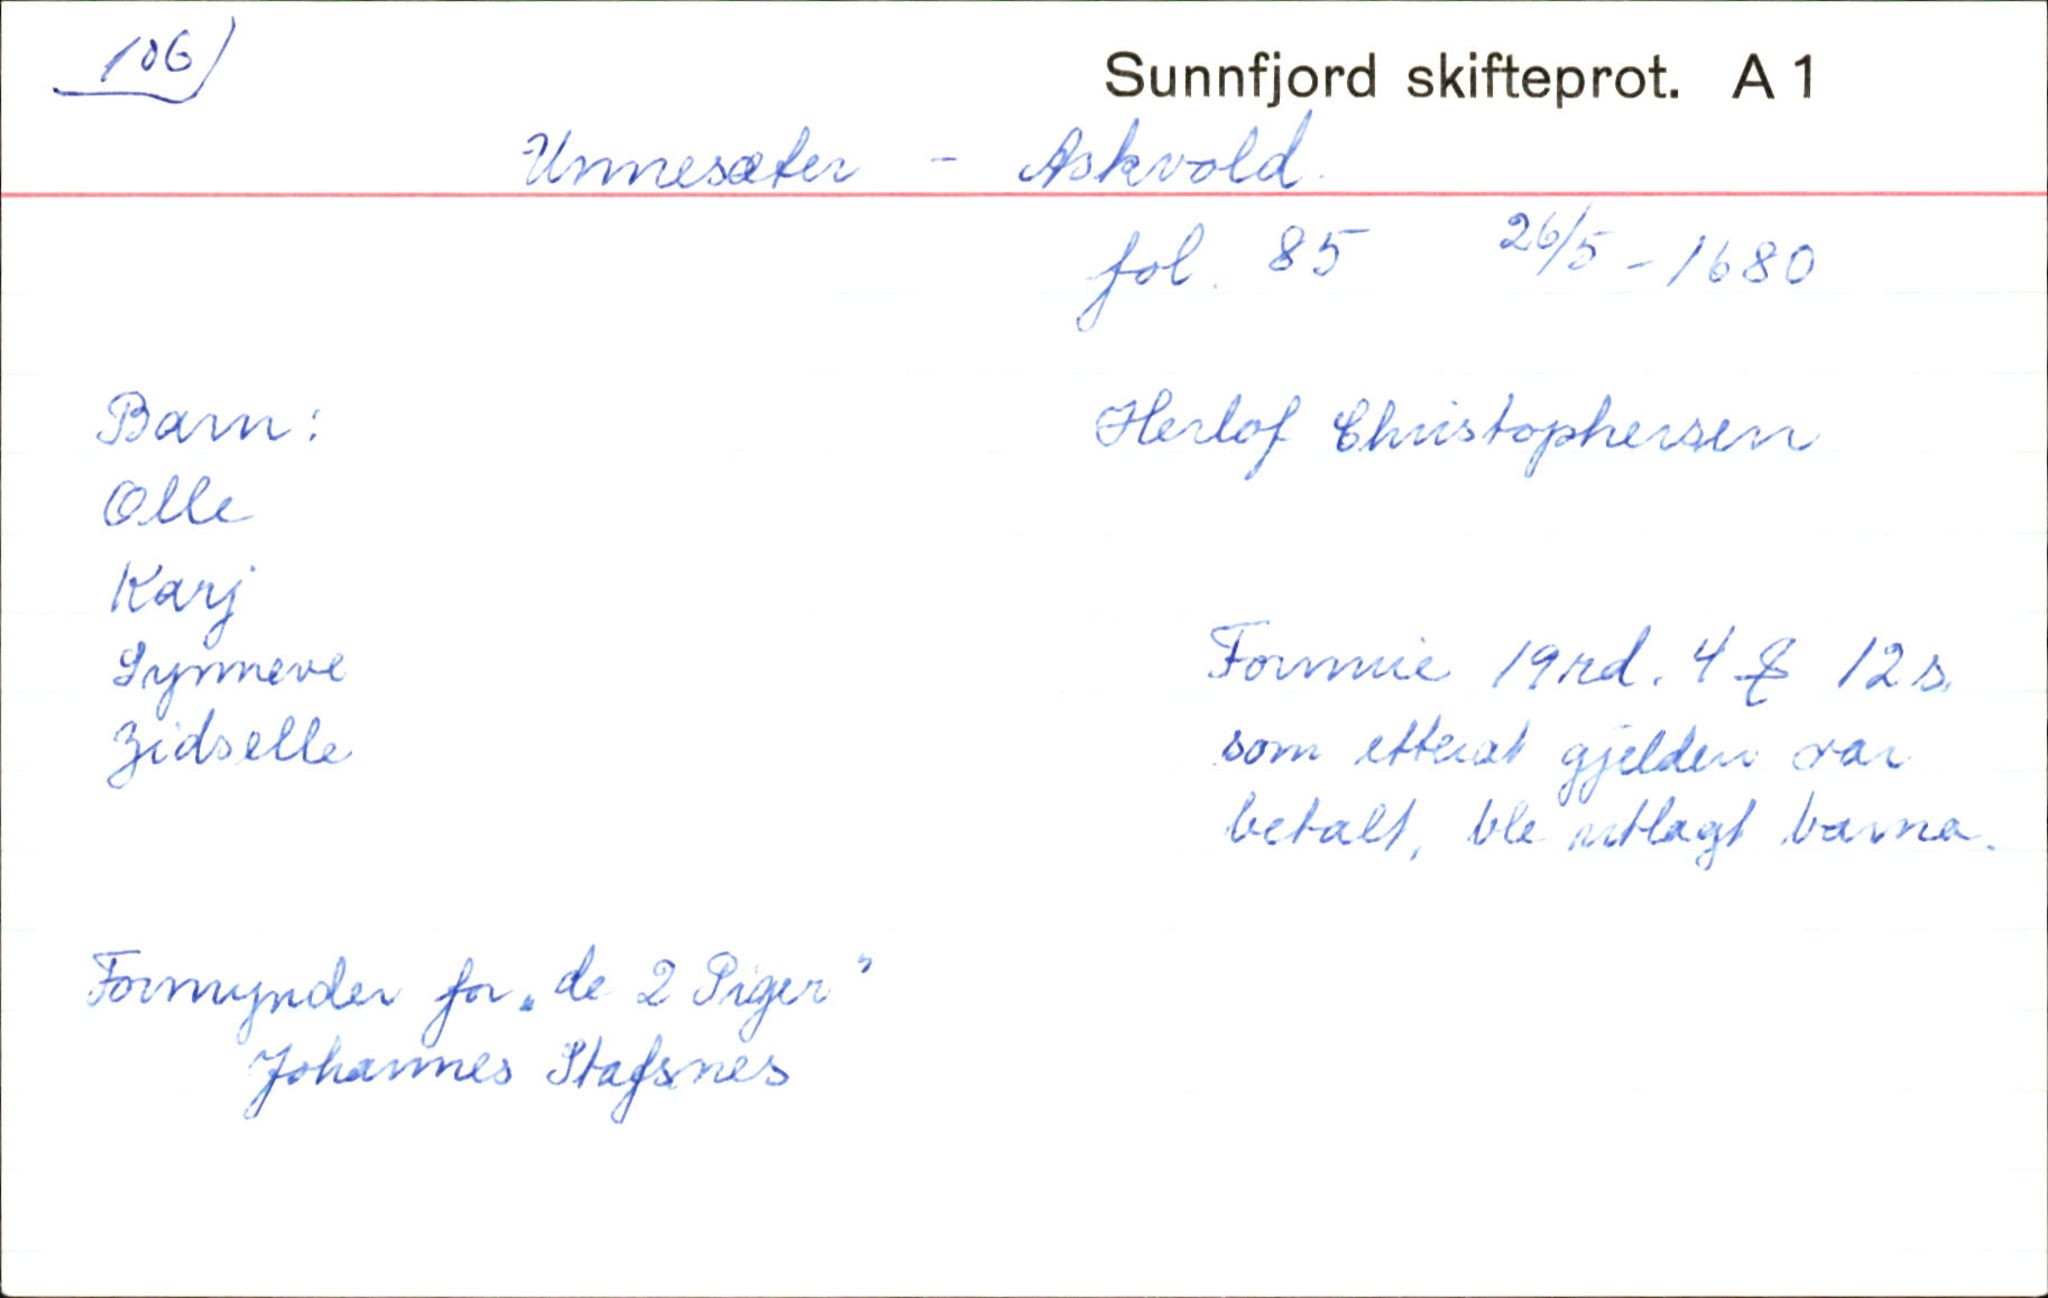 106)
Sunnfjord skifteprot. A 1
Unnesæter - Askvold.
fol. 85 26/5 - 1680
Barn:
Olle
Karj
Synneve
Zidselle
Herlof Christophersen
Formue 19 rd. 4 ₰ 12 s.
som etterat gjelden var
betalt, ble utlagt barna.
Formynder for „de 2 Piger”
Johannes Stafsnes